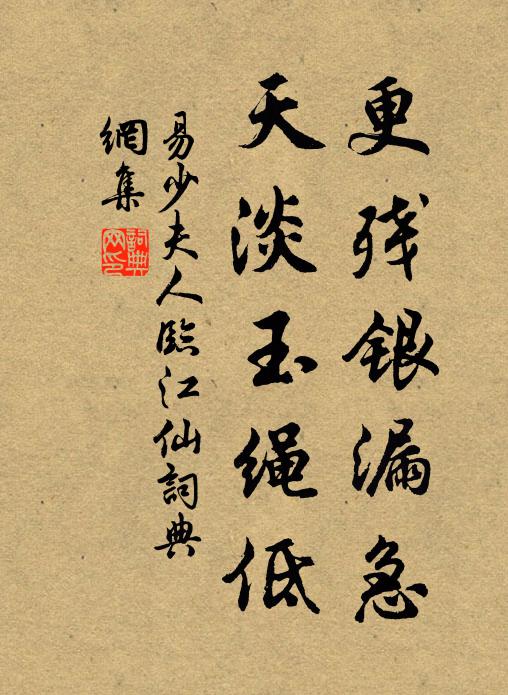 更残银漏急
天淡玉绳低
易少夫人臨江仙詞典
網集
詞典
网印